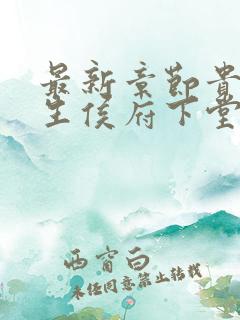 最新章節貴
生侯府下堂
西窗白
未经同意禁止转载